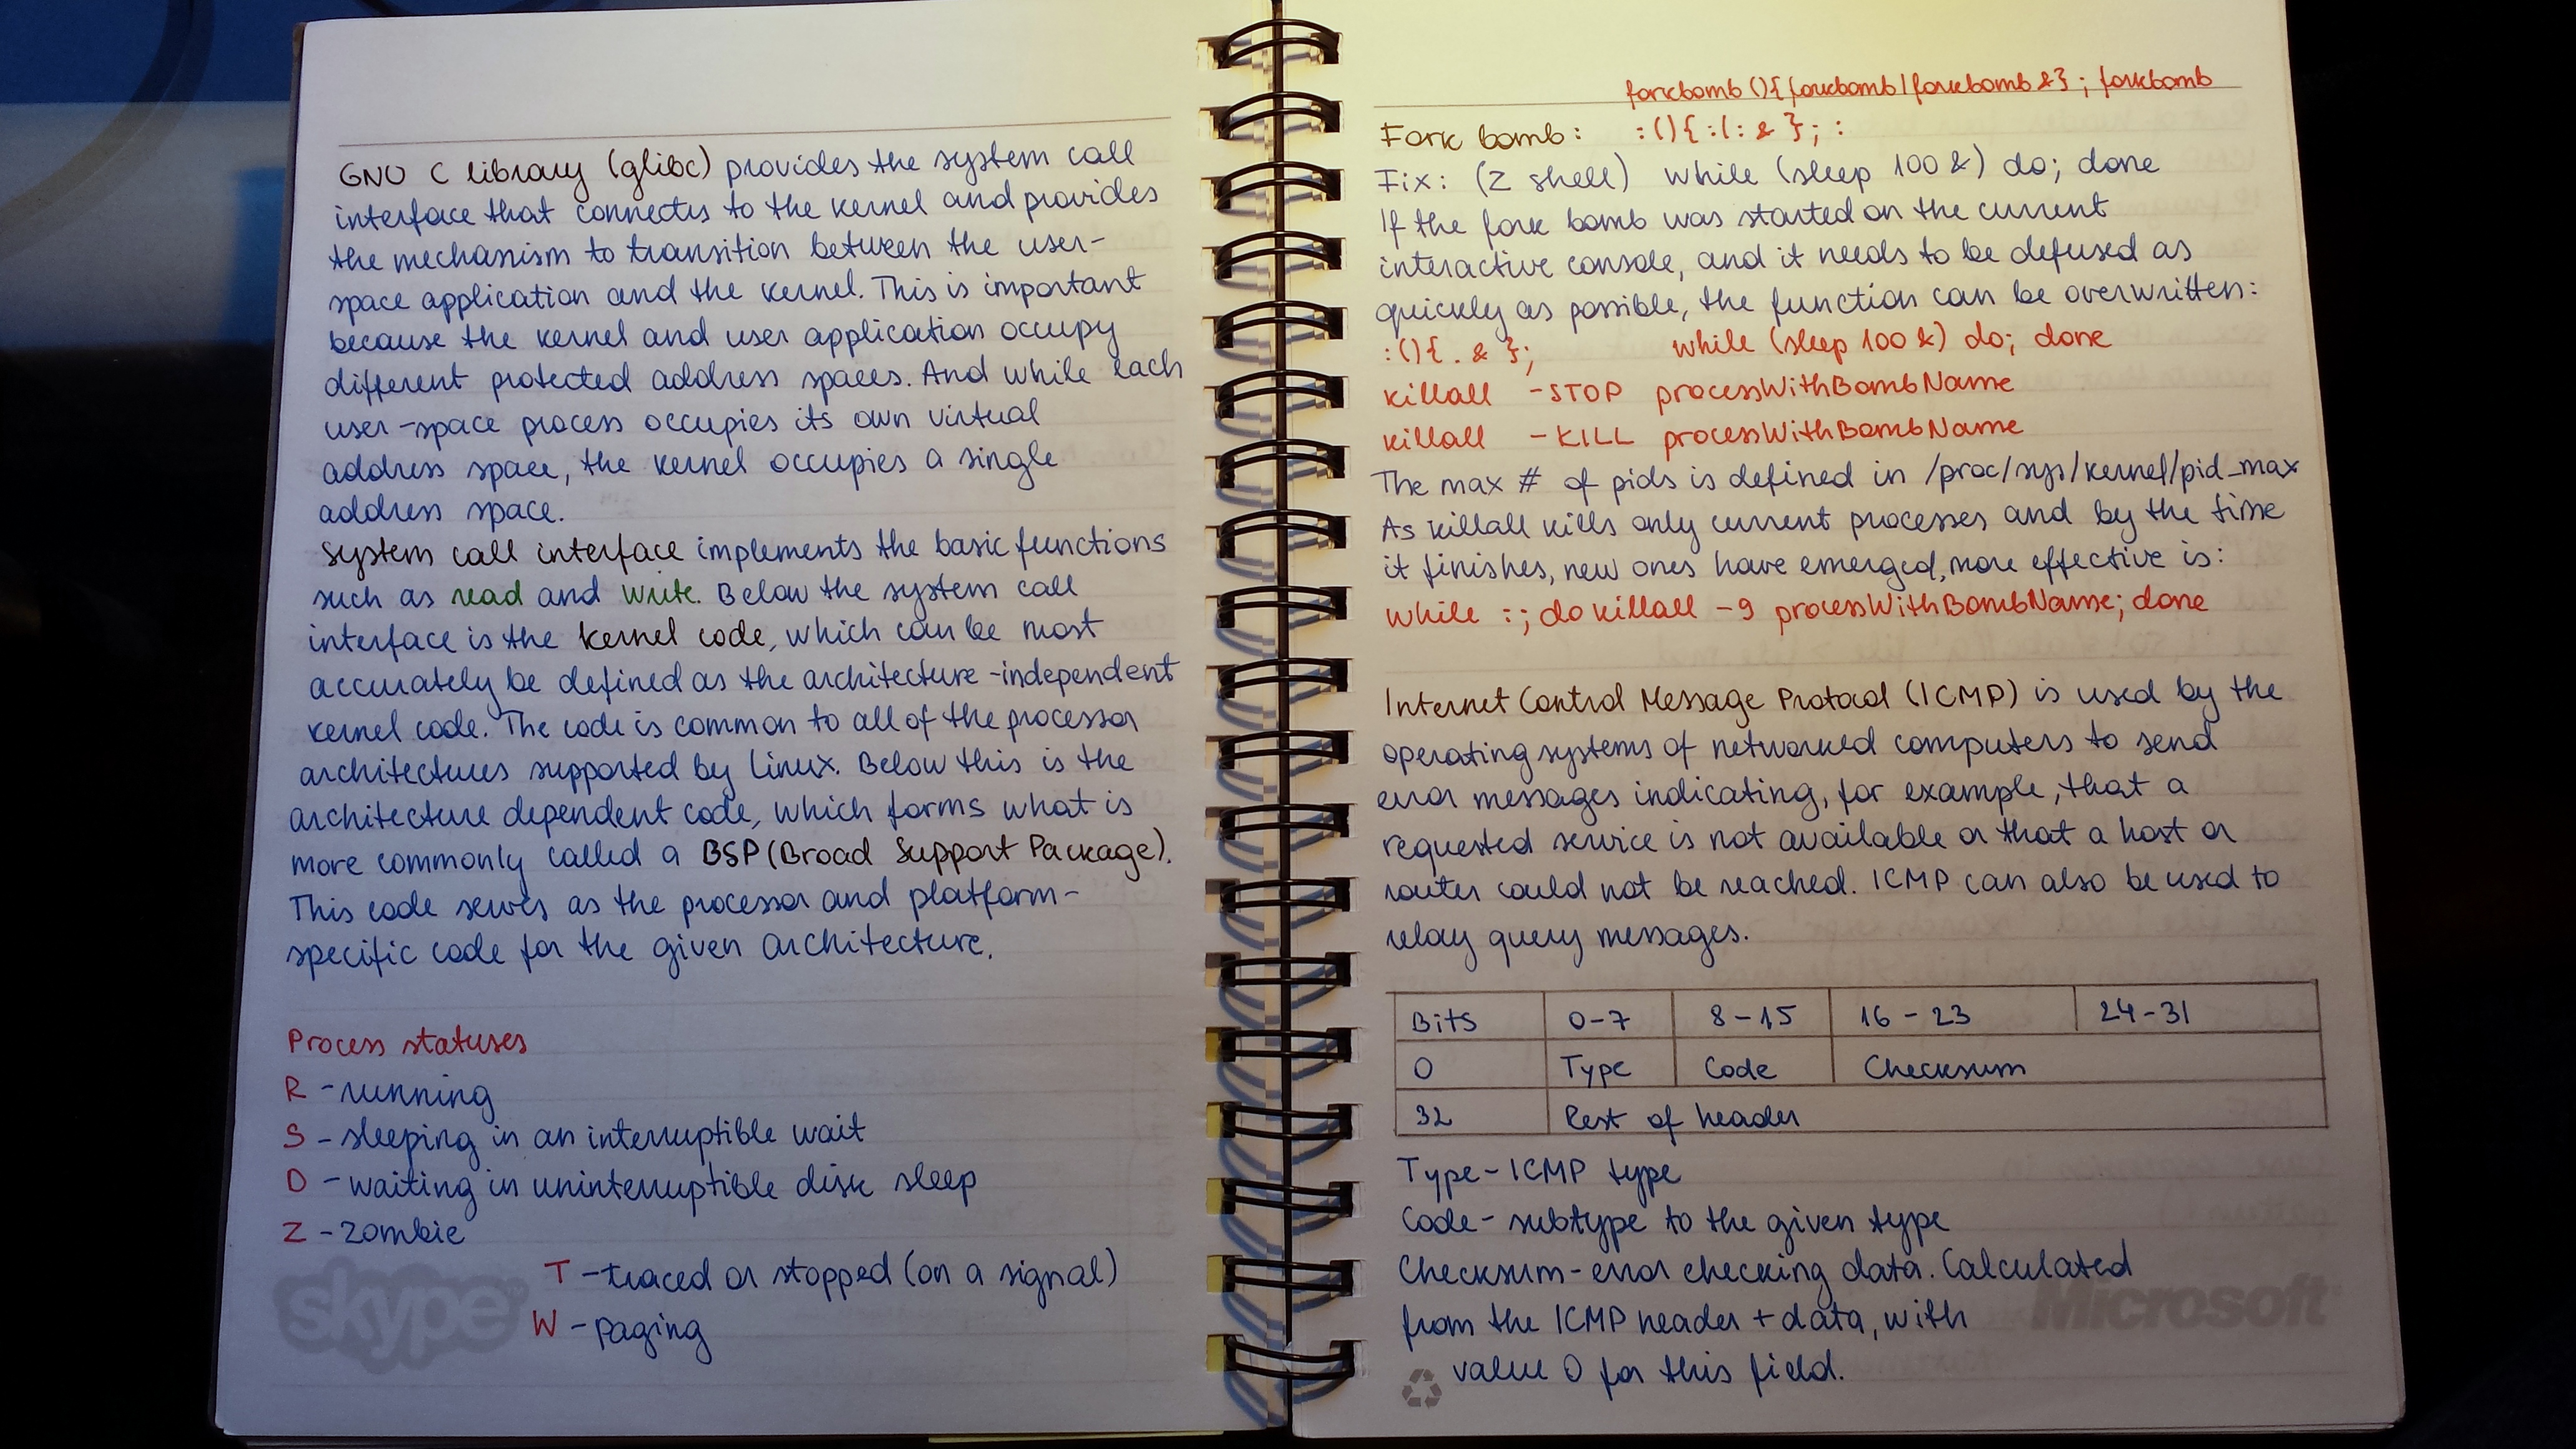 GNU C library (glibc) provides the system call
interface that connects to the kernel and provides
the mechanism to transition between the user-
space application and the kernel. This is important
because the kernel and user application occupy
different protected address spaces. And while each
user-space process occupies its own virtual
address space, the kernel occupies a single
address space.
System call interface implements the basic functions
such as read and write. Below the system call
interface is the kernel code, which can be most
accurately be defined as the architecture-independent
kernel code. The code is common to all of the processor
architectures supported by Linux. Below this is the
architecture dependent code, which forms what is
more commonly called a BSP (Broad Support Package).
This code serves as the processor and platform-
specific code for the given architecture.
Process statuses
R - running
S - sleeping in an interruptible wait
D - waiting in uninterruptible disk sleep
Z - zombie
T - traced or stopped (on a signal)
W - paging
skype
forkbomb(){forkbomb|forkbomb&}; forkbomb
Fork bomb: :(){:|:&};:
Fix: (Z shell) while (sleep 100 &) do; done
If the fork bomb was started on the current
interactive console, and it needs to be defused as
quickly as possible, the function can be overwritten:
:(){ . & }; while (sleep 100 &) do; done
killall -STOP processWithBombName
killall -KILL processWithBombName
The max # of pids is defined in /proc/sys/kernel/pid_max
As killall kills only current processes and by the time
it finishes, new ones have emerged, more effective is:
while :; do killall -9 processWithBombName; done
Internet Control Message Protocol (ICMP) is used by the
operating systems of networked computers to send
error messages indicating, for example, that a
requested service is not available or that a host or
router could not be reached. ICMP can also be used to
relay query messages.
Bits 0-7 8-15 16-23 24-31
0 Type Code Checksum
32 Rest of header
Type - ICMP type
Code - subtype to the given type
Checksum - error checking data. Calculated
from the ICMP header + data, with
value 0 for this field.
Microsoft